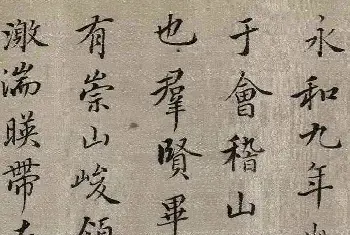 永和九年
于會稽山
也羣賢畢
有崇山峻領
激湍暎帶